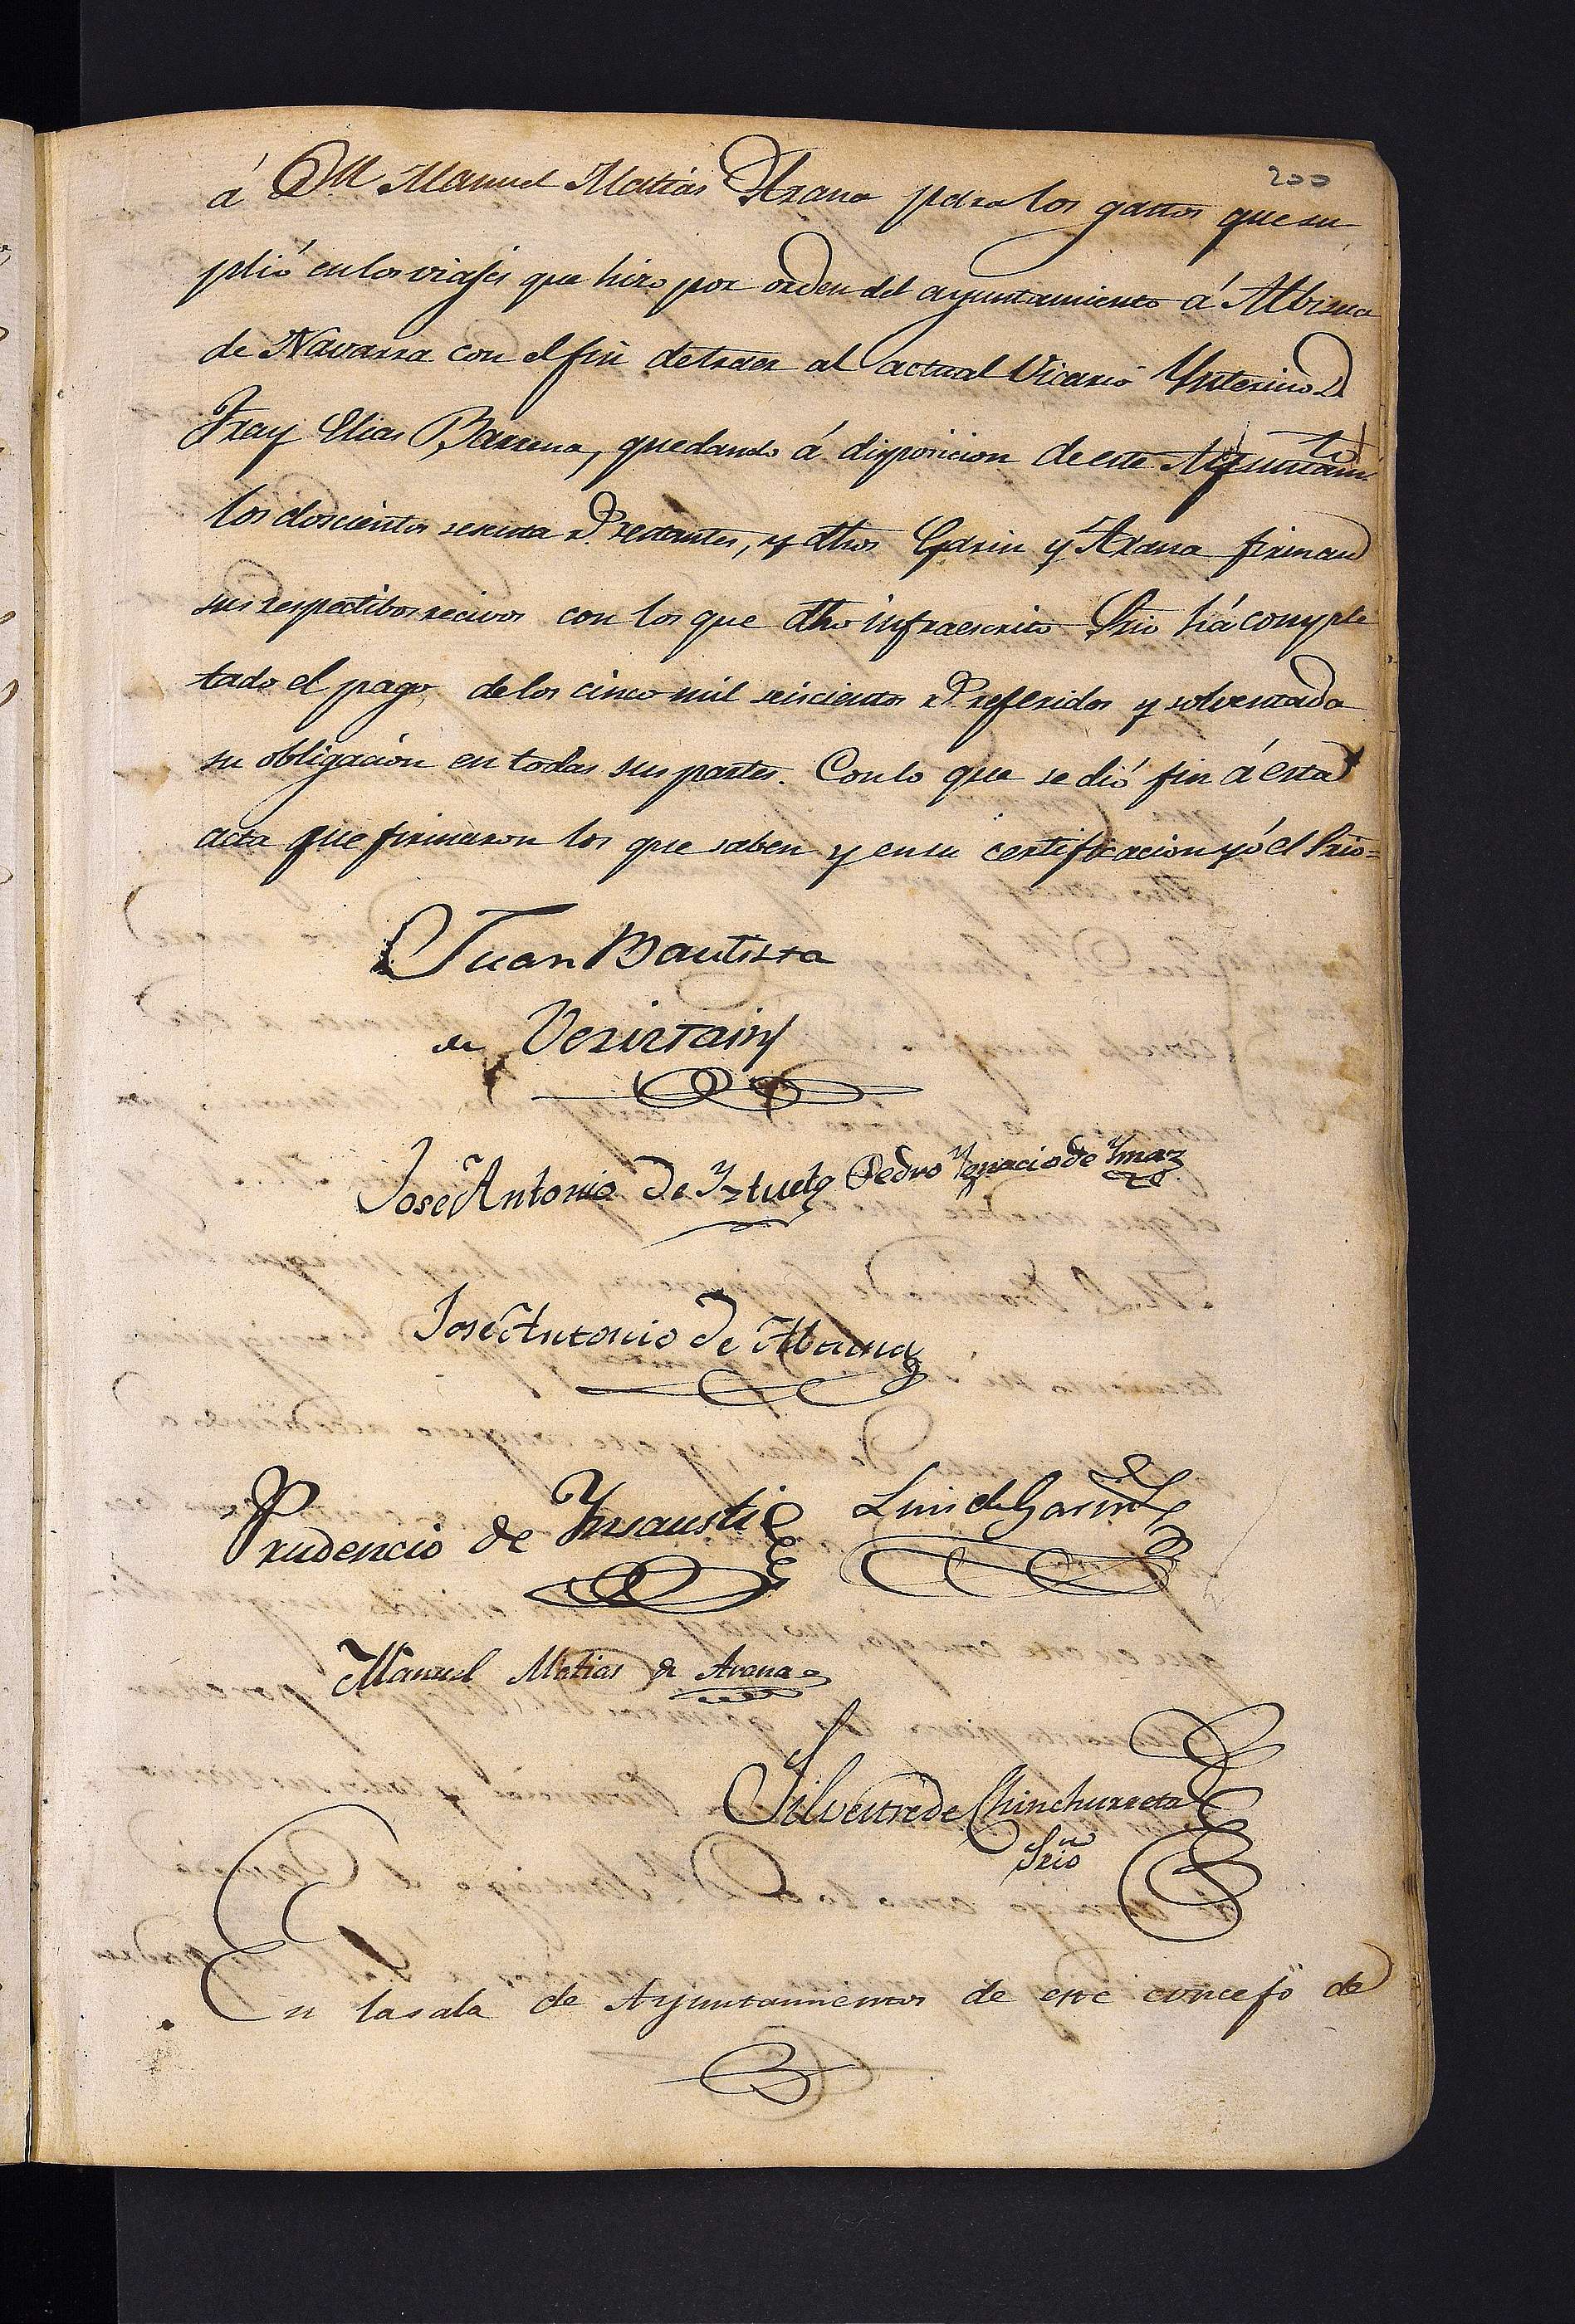 200
á Dn Manuel Matias Arana para los gastos que su
plió en los viajes que hizo por orden del ayuntamiento á Albisua
de Navarra con el fin de traer al actual Vicario Ynterino D
Fray Elias Barrena, quedando á disposicion de este Ayuntamto
los doscientos sesenta rs. restantes, y dhos Garin y Arana firman
sus respectibos recivos con los que dho infraescrito Srio há comple
tado el pago de los cinco mil seiscientos rs. referidos y solventada
su obligación en todas sus partes. Con lo que se dió fin á esta
acta que firmaron los que saben y en su certificacion yó el Srio=
Juan Bautista
de Veriztain
José Antonio de Yztueta Pedro Ygnacio de Ymaz
José Antonio de
Prudencio de Ynsausti Luis de Garin
Manuel Matias de Arana
Silvestre de Chinchurreta
Srio
En la sala de Ayuntamientos de este concejo de